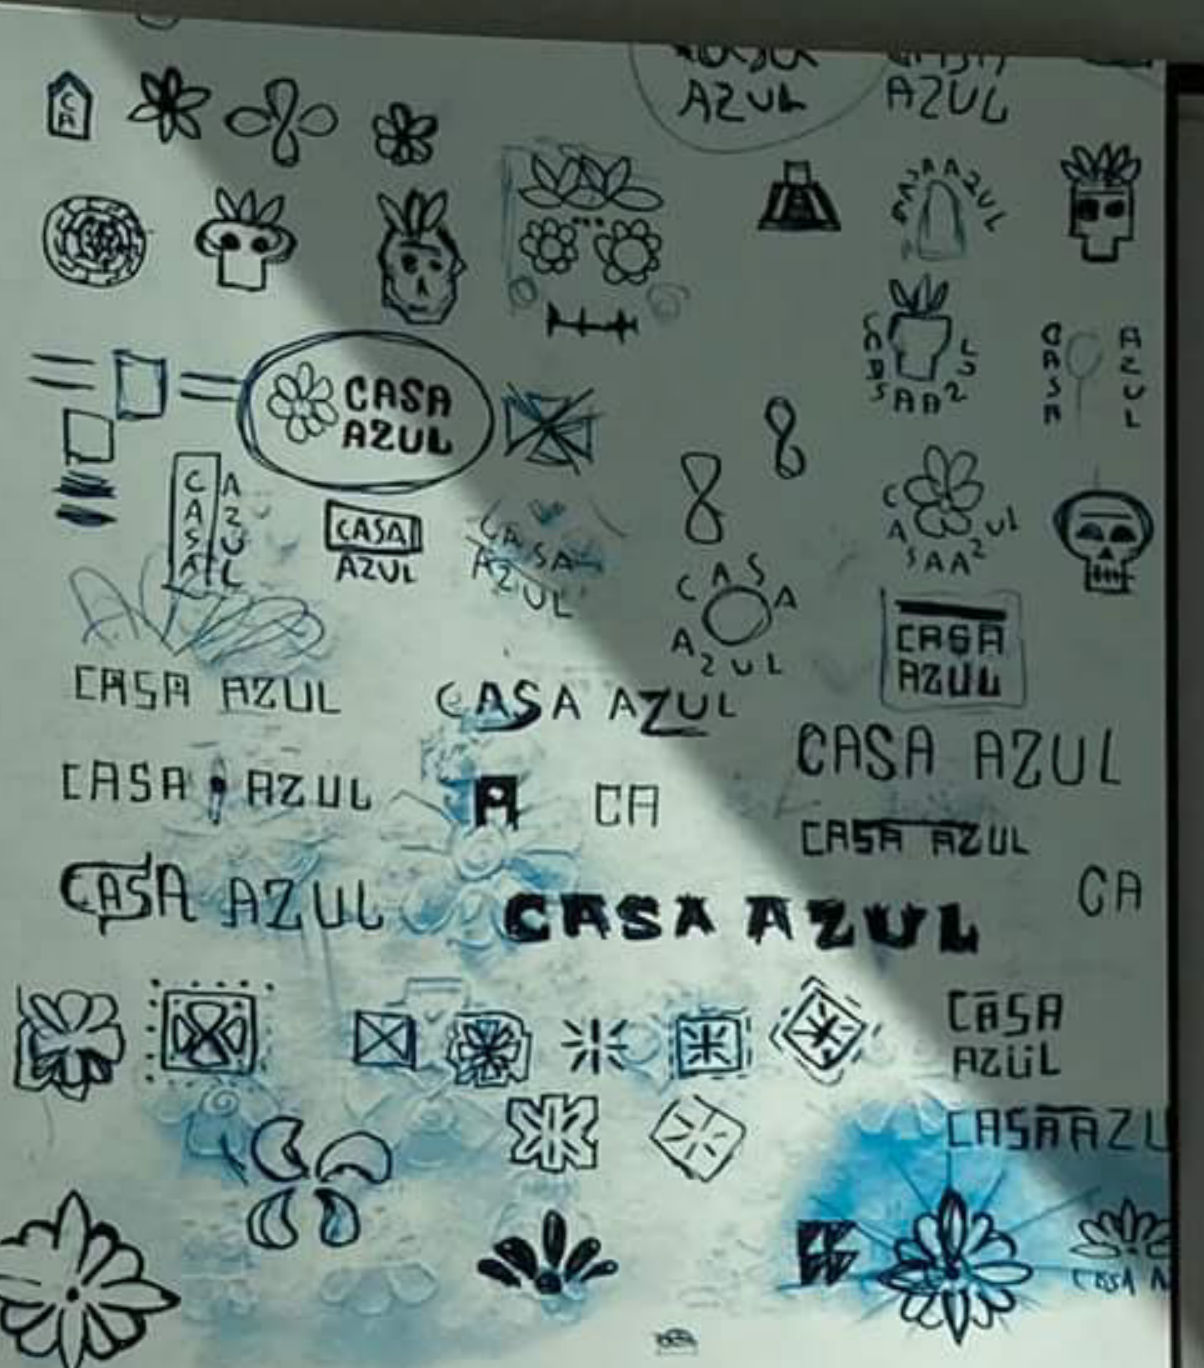 CASA
AZUL
AZUL
CA
CASA AZUL
CASA AZUL
CASA
AZUL
CASA AZUL
CASA AZUL
CASA AZUL
CASA
AZUL
CASA
AZUL
CASA AZUL
CASA
AZUL
CASA AZUL
CASA AZUL
CASA AZUL
CASA AZUL
CASA AZUL
A
CA
CASA AZUL
CA
CASA AZUL
CASA AZUL
CĀSA
AZÜL
CASA AZU
CASA A